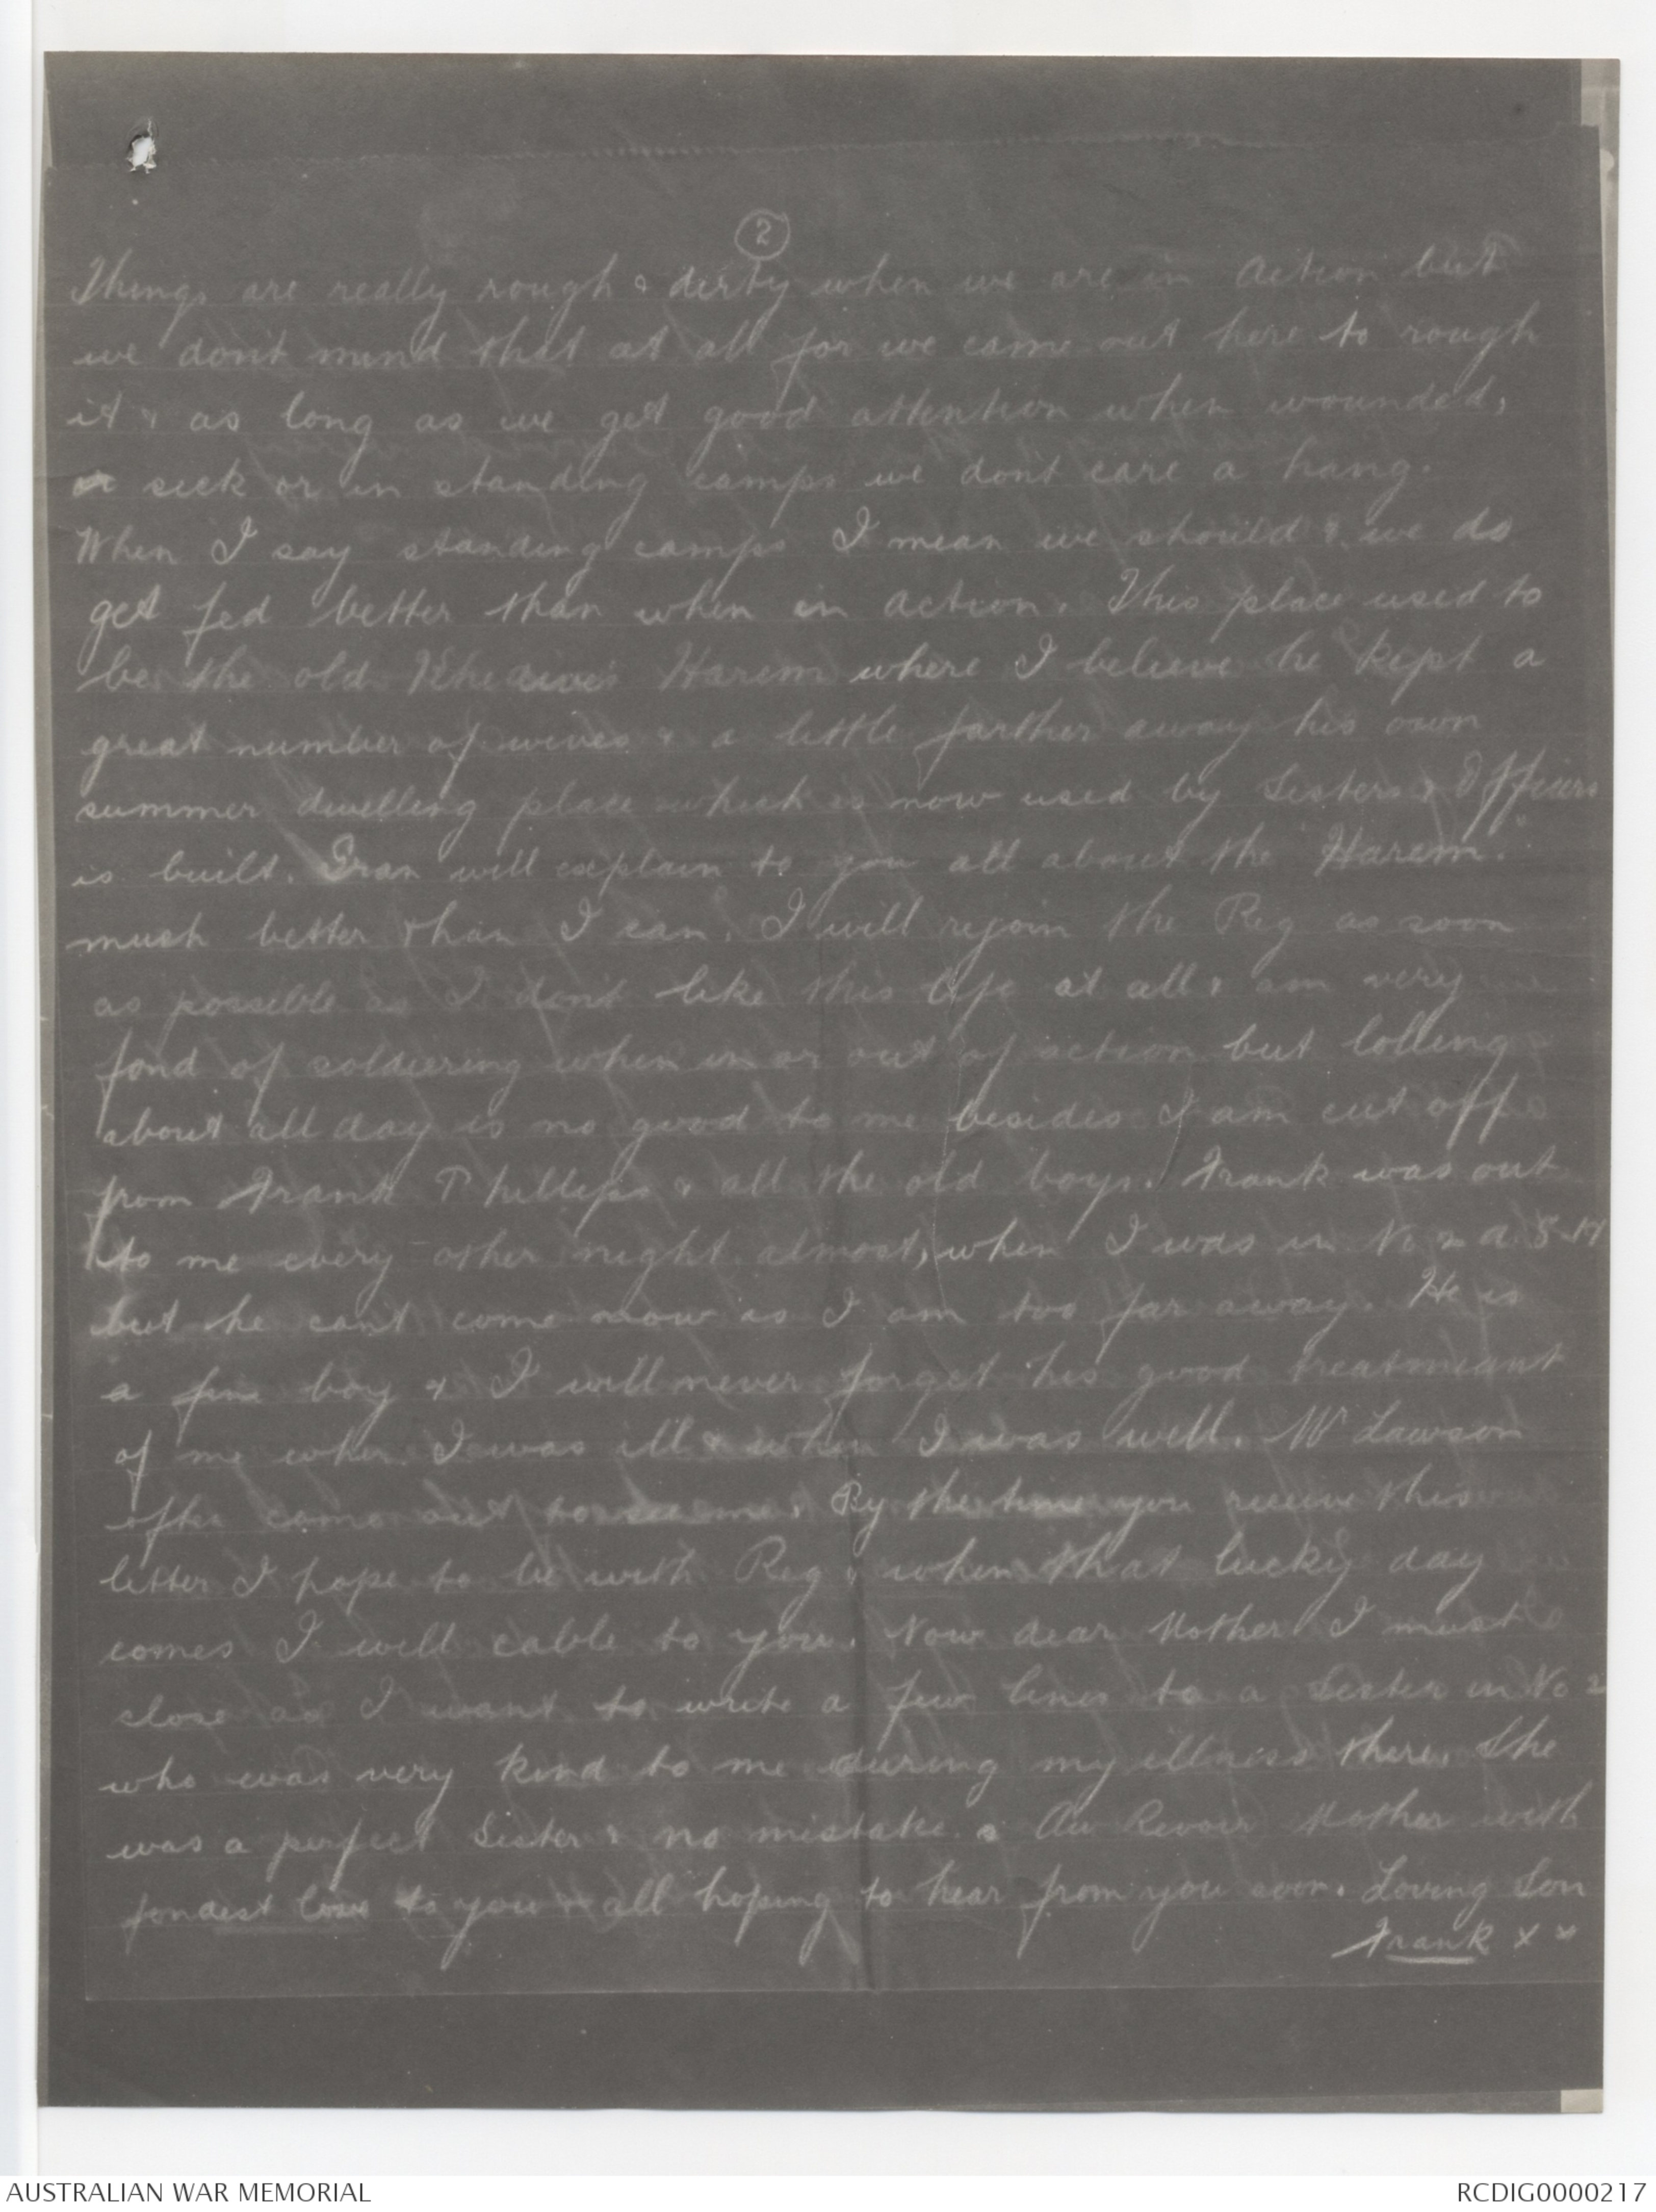 2
Things are really rough & dirty when we are in action but
we don't mind that at all for we came out here to rough
it & as long as we get good attention when wounded,
or sick or in standing camps we dont care a hang.
When I say standing camps I mean we should & we do
get fed better than when in action. This place used to
be the old Khedive's Harem where I believe he kept a
great number of wives & a little farther away his own
summer dwelling place which is now used by Sisters & Officers
is built. Gran will explain to you all about the Harem.
much better than I can. I will rejoin the Reg as soon
as possible as I dont like this life at all & am very
fond of soldiering when in or out of action but lolling
about all day is no good to me besides I am cut off
from Frank Phillips & all the old boys. Frank was out
to me every other night almost, when I was in No 2 A.S.H
but he cant come now as I am too far away. He is
a fine boy & I will never forget his good treatmeant
of me when I was ill & when I was well. Mr Lawson
often came out to see me. By the time you receive this
letter I hope to be with Reg & when that lucky day
comes I will cable to you. Now dear Mother I must
close as I want to write a few lines to a Sister in No 2
who was very kind to me during my illness there. She
was a perfect Sister & no mistake. Au Revoir Mother with
fondest love to you & all hoping to hear from you soon. Loving Son
Frank x x
AUSTRALIAN WAR MEMORIAL
RCDIG0000217